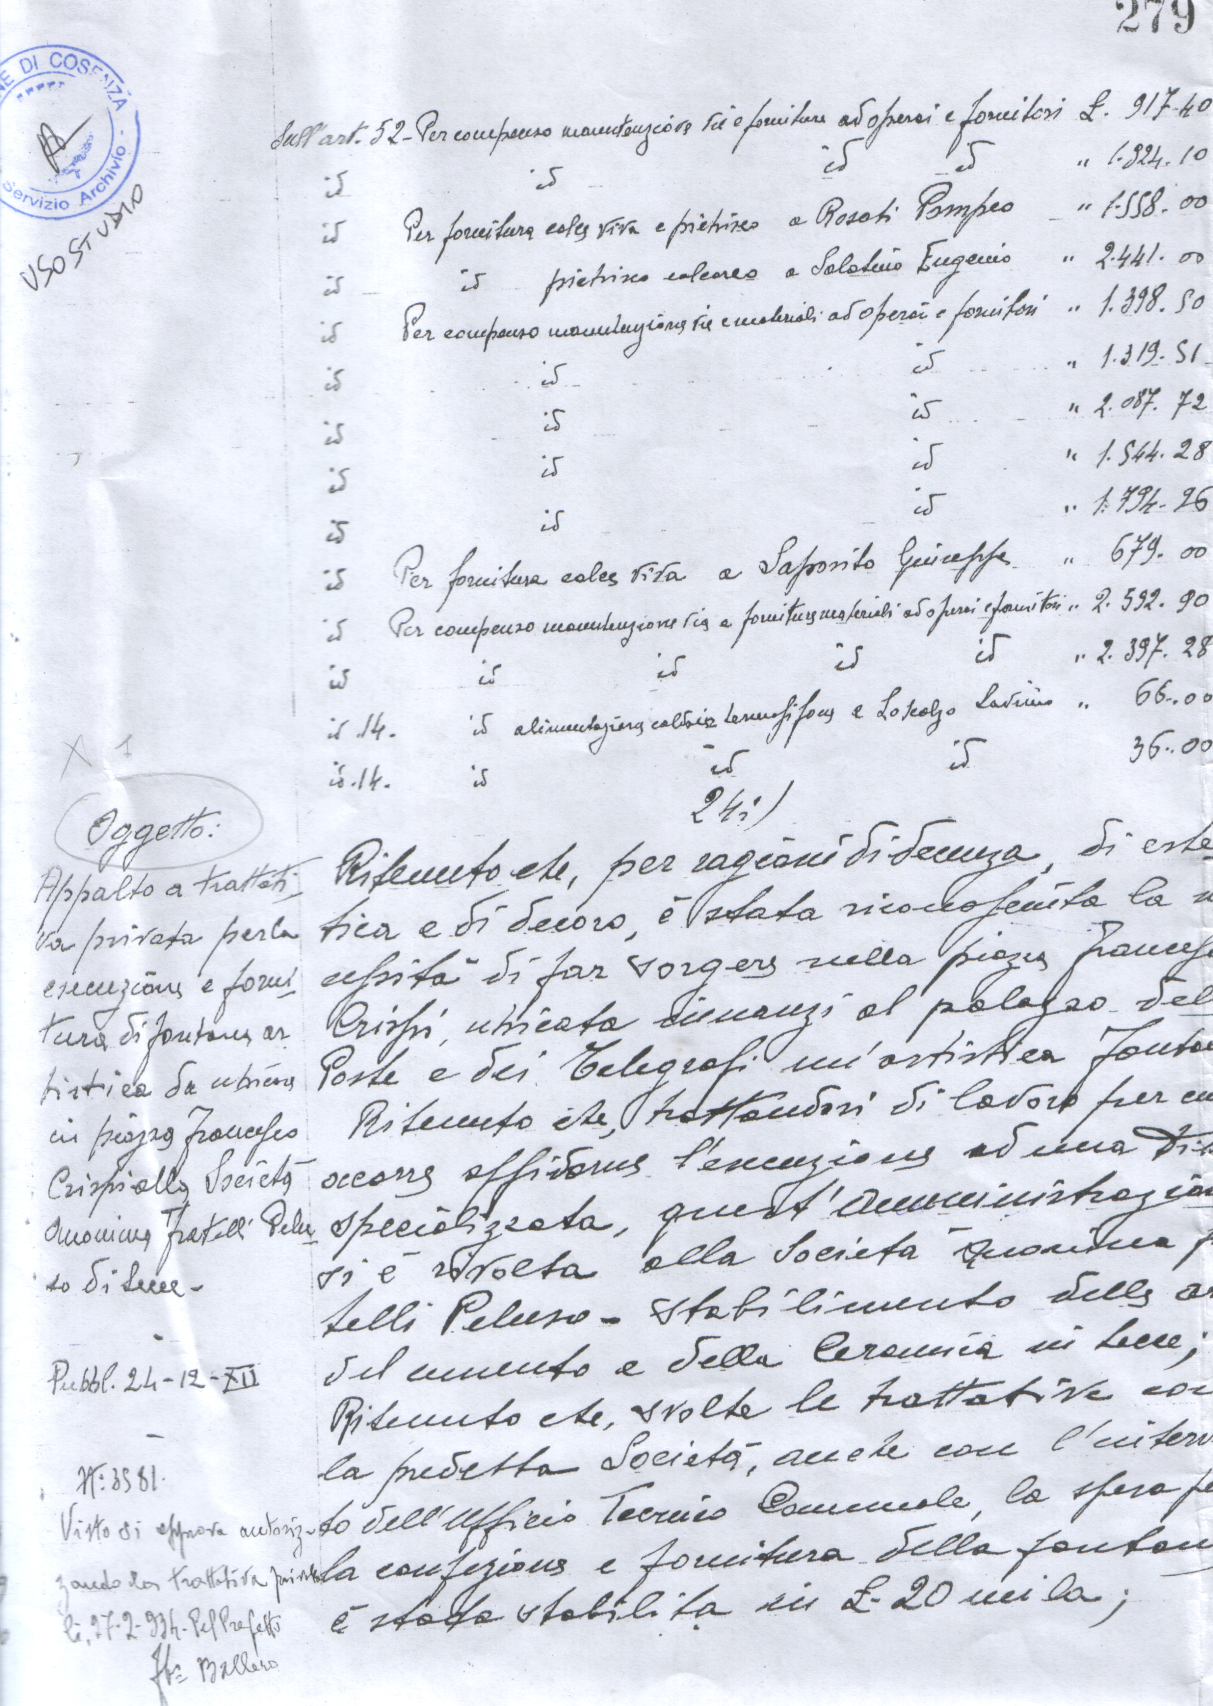 279
NE DI COSENZA
Servizio Archivio
USO STUDIO
Sull'art. 52 - Per compenso manutenzione vie e forniture ad operai e fornitori £. 917.40
id id id id " 1.324.10
id Per fornitura calce viva e pietrisco a Rosati Pompeo " 1.558.00
id id pietrisco calcareo a Salatino Eugenio " 2.441.00
id Per compenso manutenzione vie e materiali ad operai e fornitori " 1.398.50
id id id " 1.319.51
id id id " 2.087.72
id id id " 1.544.28
id id id " 1.794.26
id Per fornitura calce viva a Saporito Giuseppe " 679.00
id Per compenso manutenzione vie e forniture materiali ad operai e fornitori " 2.592.90
id id id id id " 2.397.28
id. 14. id alimentazione caldaia termosifone a Loscalzo " 66.00
id. 14. id id id 36.00
24i)
X 1
Oggetto:
Appalto a trattati-
va privata per la
esecuzione e forni-
tura di fontana ar
tistica da ubicare
in piazza Francesco
Crispi alla Società
Anonima Fratelli Pelu-
so di Lecce -
Pubbl. 24-12-XII
N: 3581.
Visto si approva autoriz-
zando la trattativa privata
li, 27-2-934. Pel Prefetto
Fto Ballero
Ritenuto che, per ragioni di decenza, di este-
tica e di decoro, è stata riconosciuta la n
cessità di far sorgere nella piazza Francesc
Crispi, ubicata innanzi al palazzo del
Poste e dei Telegrafi un'artistica fonta
Ritenuto che, trattandosi di lavoro per cu
occorre affidarne l'esecuzione ad una Di
specializzata, quest'Amministrazio
si è rivolta alla Società Anonima F
telli Peluso - Stabilimento delle ar
del cemento e della Ceramica in Lecce;
Ritenuto che, svolte le trattative con
la predetta Società, anche con l'interv
to dell'Ufficio Tecnico Comunale, la spesa pe
la confezione e fornitura della fontana
è stata stabilita in £. 20 mila;